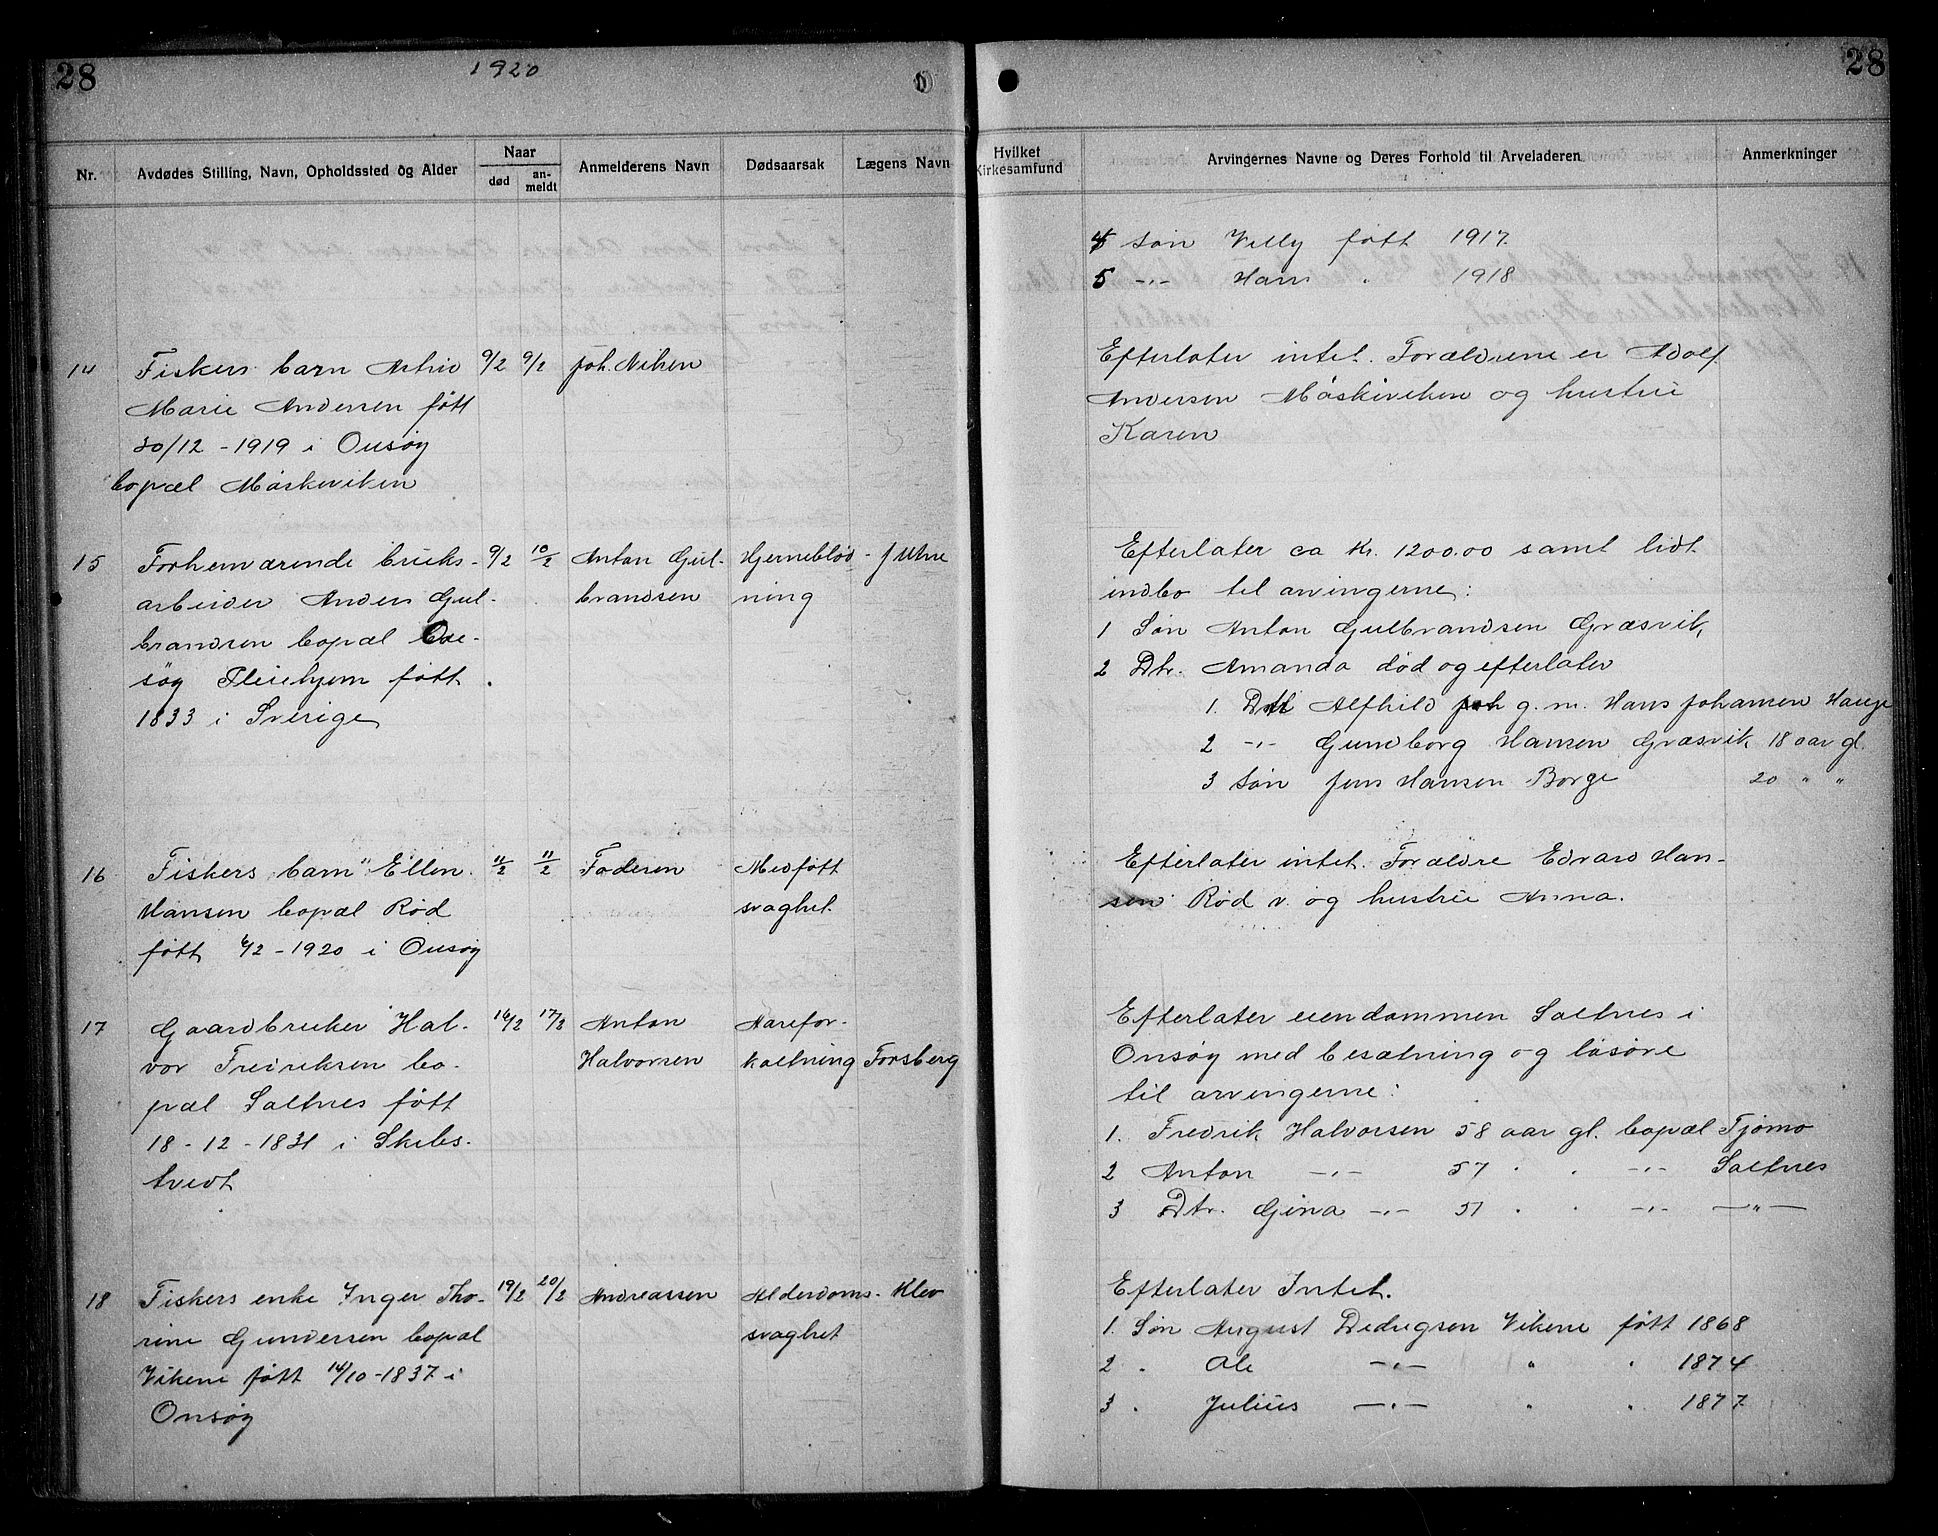 28
1920
28
Nr.
Avdødes Stilling, Navn, Opholdssted og Alder
Naar
død
an-
meldt
Anmelderens Navn
Dødsaarsak
Lægens Navn
Hvilket
Kirkesamfund
Arvingernes Navne og Deres Forhold til Arveladeren
Anmerkninger
4 Søn Villy født 1917.
5 -"- Hans " 1918
14
Fiskers barn Astrid
Marie Andersen født
30/12 - 1919 i Onsøy
bopæl Møskeviken
9/2
9/2
Joh. Nilsen
Efterlater intet. Forældrene er Adolf
Andersen Møskeviken og hustru
Karen
15
Forhenværende bruks-
arbeider Anders Gul-
brandsen bopæl On-
søy Pleiehjem født
1833 i Sverige
9/2
10/2
Anton Gul-
brandsen
Hjerneblød-
ning
J Utne
Efterlater ca Kr. 1200.00 samt lidt
indbo til arvingerne:
1 Søn Anton Gulbrandsen Græsvik
2 Dtr. Amanda død og efterlater
1. Dtr Alfhild g. m. Hans Johansen Hauge
2 -"- Gundborg Hansen Græsvik 18 aar gl.
3 Søn Jens Hansen Borge 20 " "
16
Fiskers barn Ellen
Hansen bopæl Rød
født 6/2 - 1920 i Onsøy
11/2
11/2
Faderen
Medfødt
svaghet.
Efterlater intet. Forældre Edvard Han-
sen Rød v. og hustru Anna.
17
Gaardbruker Hal-
vor Fredriksen bo-
pæl Saltnes født
18 - 12 - 1831 i Skibs-
tvedt
16/2
17/2
Anton
Halvorsen
Aarefor-
kalkning
Forsberg
Efterlater eiendommen Saltnes i
Onsøy med besætning og løsøre
til arvingerne:
1. Fredrik Halvorsen 58 aar gl. bopæl Tjømø
2 Anton -"- 57 " " -"- Saltnes
3 Dtr. Gina -"- 51 " " -"- -"-
18
Fiskers enke Inger Tho-
rine Gundersen bopæl
Vikene født 14/10 - 1837 i
Onsøy
19/2
20/2
Andreassen
Alderdoms-
svaghet
Klev
Efterlater Intet.
1. Søn August Didrigsen Vikene født 1868
2 " Ole -"- " " 1874
3 " Julius -"- " " 1877